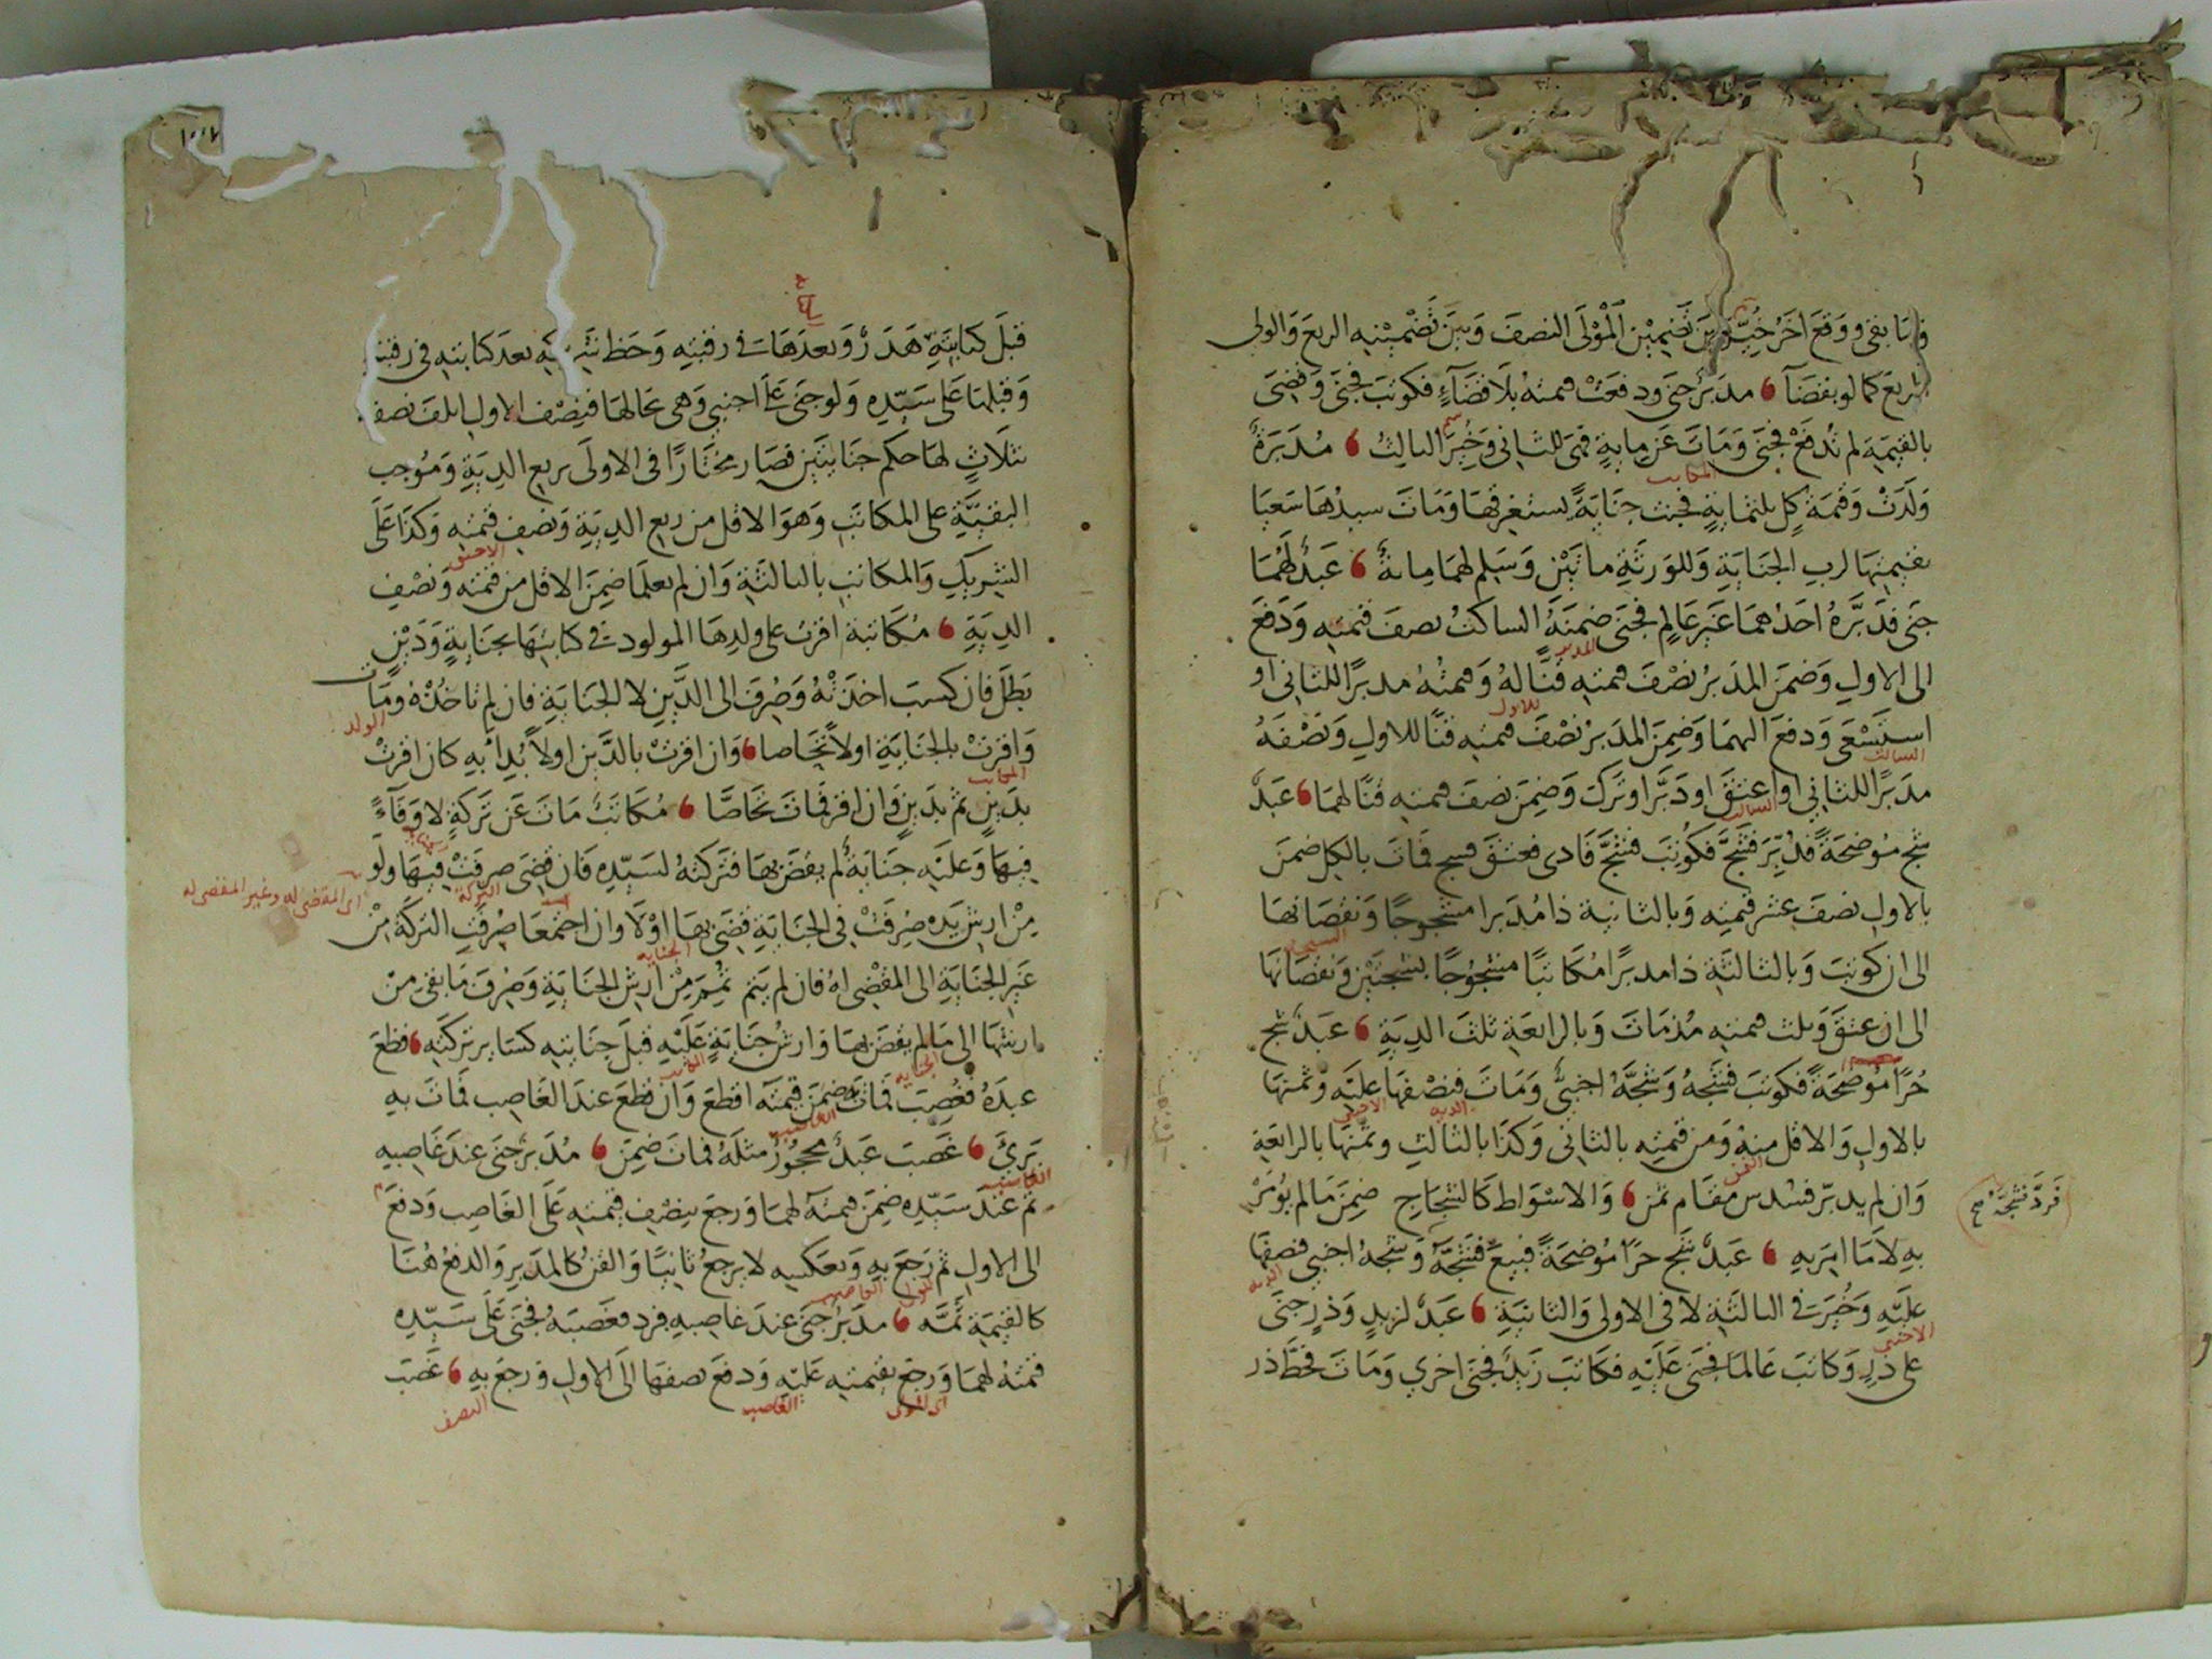 بقى ووقع اخر خُيّر بين تضمين المَوْلَى النصفَ وبين تضمينه الربعَ والولى
الربع كما لو بقضآ ، مدبر جنى ودفعت قيمته بلا قضآءٍ فكوتب فجنى وقضى
بالقيمة لم تُدفَع فجنى وَمَاتَ عن مايةٍ فهى للثانى وخُيّرَ الثالث ، مُدَبَّرَةٌ
وَلَدَتْ وَقيمَةُ كلٍ ثلثمايةٍ فجنت جنايةً يستغرقها وَمَاتَ سيدُها سَعَيَا
بقيمتها لرب الجناية وللورثةِ مائتَيْن وَسَلِم لهما ماية ، عَبدٌ لَهُمَا
جنى فدَبَّرهُ احدهما غير عَالِمٍ فجنى ضمنَهُ الساكت نصفَ قيمته وَدَفَعَ
الى الاولِ وَضمنَ المدَبرُ نصْفَ قيمته قِنًّا لهُ وَقيمتُهُ مدبرًا للثانى او
استسْعَى وَدفعَ اليهما وَضمِنَ المدَبرُ نصْفَ قيمته قنًّا للاول وَنصْفَهُ
مدبرًا للثانى او اعتقَ او دَبَّرَ او تَركَ وَضمِنَ نصفَ قيمته قنًّا لهما ، عَبدٌ
شج مُوضحَةً فدُبّرَ فشَجَّ فكوتبَ فشجَّ فادى فعتقَ فشج فمات بالكل ضمنَ
بالاول نصفَ عشر قيمته وَبالثانية ذا مُدَبرا مشجوجًا وَنقصَانها
الى ان كوتبَ وَبالثالثَة ذا مدبرًا مُكَاتبًا مشجوجًا بشجتين وَنقصَانَها
الى ان عتقَ وَثلث قيمته مُذ مَات وَبالرابعَة ثلثَ الدية ، عَبدٌ شج
حُرًا مُوضحَةً فكوتبَ فشجهُ وَشجَّهُ اجنبىٌّ وَمَاتَ فنصْفها عليَه وَثمنها
بالاول والاقل منهُ وَمن قيمته بالثانى وَكذَا بالثالث وثمنها بالرابعَة
وَان لم يدبّر فسُدس مقام ثمن ، وَالاسْوَاط كالشجاج ضمِنَ مَا لم يُؤمَرْ
بهِ لاَ مَا امِرَ بهِ ، عَبدٌ شَج حرًا مُوضحَةً فبيعَ فشَجَّهُ وَشجهُ اجنبى فنصفها
عليَهِ وَخُيّرَ فى الثالثَة لا فى الاولى وَالثانيَةِ ، عَبدٌ لزيدٍ وَذرٍ جنَى
على ذرٍ وَكاتبَ عَالمًا فجنى عَليَهِ فكَاتبَ زَيدٌ فجنَى اخرى وَمَاتَ فحظُّ ذر
فَردَّ فشجَّهُ صح
المكاتب
المدبر
للاول
الساكت
الاجنبى
الدية
القن
قبلَ كتابتِه هَدَرٌ وَبعدَهَا فى رقبتِه وَحَظ شريكه بعدَ كتابته فى رقبته
وَقبلها عَلى سَيّدِه وَلو جنَى عَلَى اجنبى وَهى بحالها فنِصْف الاول اتلفَ نصفه
بثلاثٍ لها حكم جنايتَين فصَار مختارًا فى الاولَى بربع الديةِ وَمُوجب
البقيَّةِ على المكاتَبِ وَهوَ الاقل من ربع الديةِ وَنصف قيمته وَكذَا عَلَى
الشريكِ وَالمكاتب بالثالثَة وَان لم يعلمَا ضمِنَ الاقل من قيمته وَنصْف
الديَةِ ، مُكَاتبة اقرت على ولدِهَا المولود فى كتابتها بجنايةٍ وَدَيْنٍ
بَطَلَ فان كسبَ اخذَتْهُ وَصُرِفَ الى الدَّين لا الجنايةِ فان لم تاخُذْهُ ومَاتَ
وَاقرتْ بالجناية اولاً تحَاصا ، وَان اقرتْ بالدَّين اولاً بُدِأ بهِ كان اقرتْ
بدَينٍ ثم بدَينٍ وَان اقرّ فمَات تحَاصَّا ، مُكَاتبٌ مَاتَ عَن تَركةٍ لا وَفَآءً
فيها وَعليَهِ جنايةٌ لم يُقضَ بها فتَركتهُ لسَيّدِه فَان قضى صرفَتْ فيها ولو
مِنْ ارش يَدِه صُرفَتْ فى الجنايَةِ قضى بها اوْلاَ وان اجتمعَا صُرفَت التركَة مِنْ
غَير الجنايَةِ الى المقْضِى لهُ فان لم يتم تُمّمَ مِنْ ارش الجنايَةِ وَصُرِفَ مَا بقى مِنْ
ارشها الى مَا لم يقضَ بها وَارش جنايَةٍ عَليَهِ قبلَ جنَايته كسَاير تركتِه ، قطعَ
عبدَهُ فغُصِبَ فمَات ضمنَ قيمَتَه اقطَع وَان قطعَ عندَ الغاصب فمَاتَ بهِ
بَرئَ ، غَصبَ عَبدٌ محجُورٌ مثلهُ فمات ضمِنَ ، مُدَبرٌ جنَى عندَ غَاصبهِ
ثم عندَ سَيّدِه ضمِنَ قيمتَهُ لهما وَرجعَ بنصْفِ قيمته عَلَى الغَاصب وَدفعَ
الى الاول ثم رَجعَ بهِ وَبعكسِه لا يرجعُ ثانيًا وَالقنُّ كالمدَبرِ وَالدفعُ هُنَا
كالقيمَة ثمَّه ، مدَبرٌ جنَى عندَ غاصبهِ فرد فغصبَهُ فجنَى عَلَى سَيّدِه
قيمتهُ لهما وَرجعَ بقيمته عَليَه وَدفعَ نصفها الَى الاول وَرجعَ بهِ ، غَصَبَ
الاجنبى
الولد
المكاتب
التركة
اى المقضى له وغير المقضى له
الجناية
الغاصب
اى المولى
الغاصب
النصف